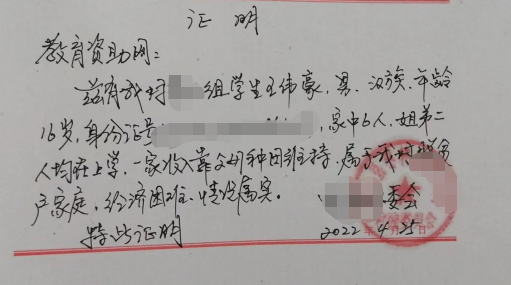 证明
教育资助网：
兹有我村 组学生王伟豪，男，汉族，年龄
16岁，身份证号 ，家中6人，姐弟二
人均在上学，一家收入靠父母种田维持，属于我村 贫
户家庭，经济困难，情况属实。
特此证明
委会
2022 4 25
年 月 日